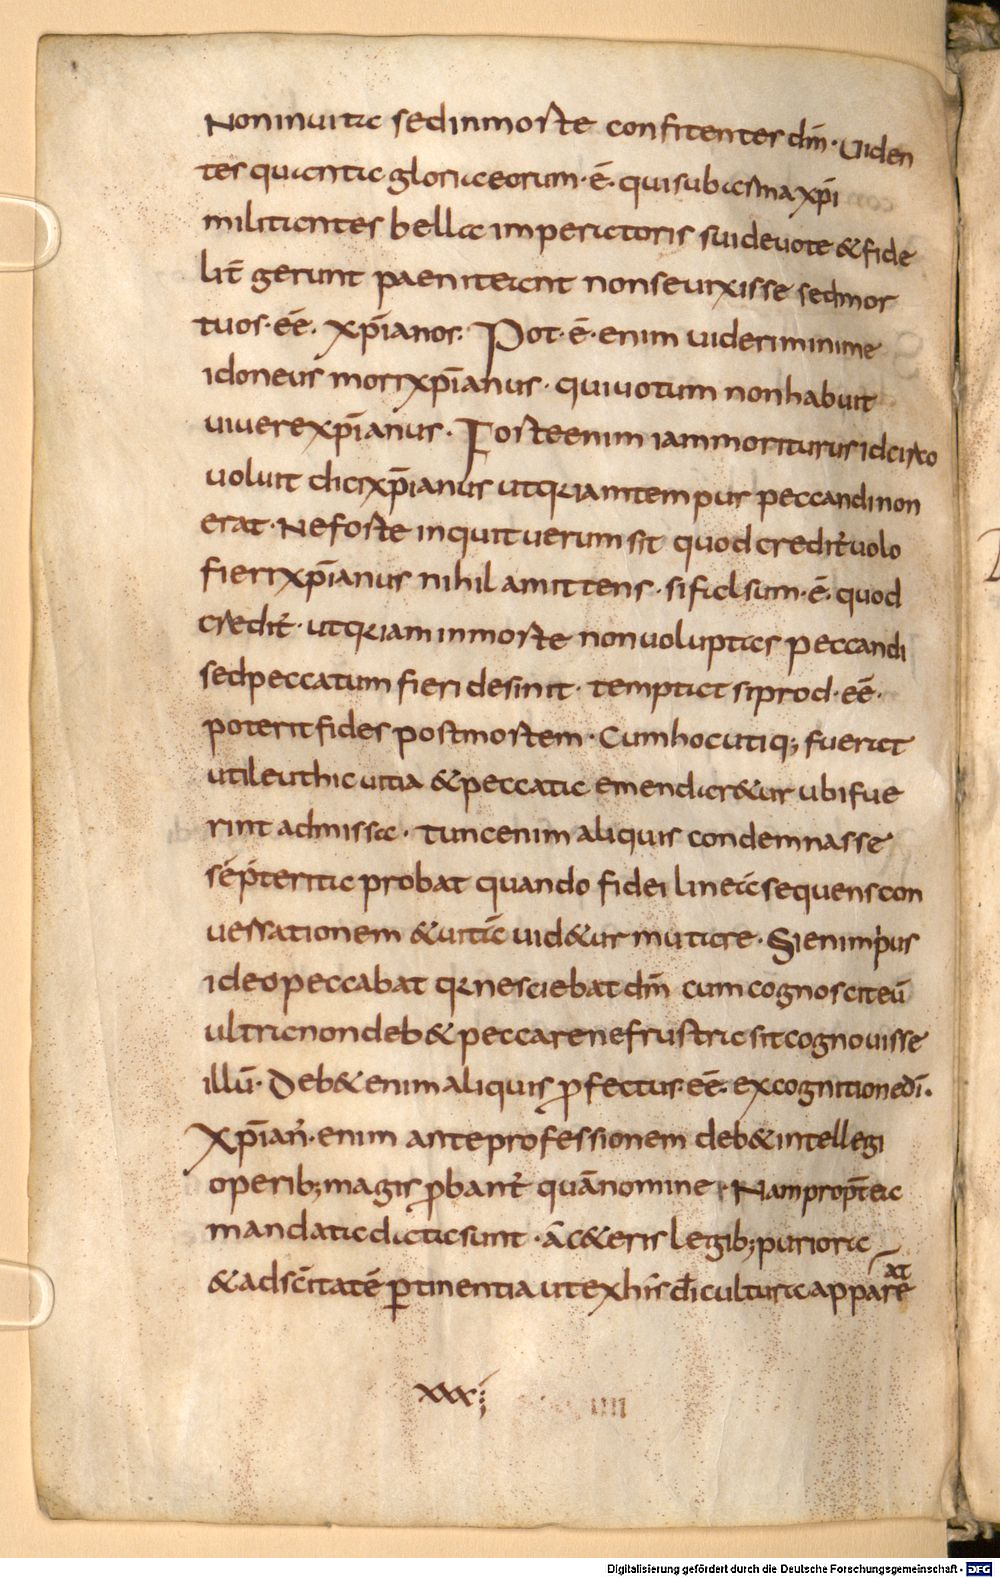 Non in uita sed in morte confitentes dm̄. Uiden
tes quanta gloria eorum · ē · qui sub arma xp̄i
militantes bella imperatoris sui deuote & fide
lit̄ gerunt paeniterent non se uixisse sed mor
tuos · eē · xp̄ianos. Pot · ē · enim uideri minime
idoneus mori xp̄ianus · qui uotum non habuit
uiuere xp̄ianus · Forte enim iam moriturus idcirco
uoluit dici xp̄ianus ut quia iam tempus peccandi non
erat · Ne forte inquit uerum sit quod credit̄ uolo
fieri xp̄ianus nihil amittens · si falsum · ē · quod
credit̄ · ut quia iam in morte non uoluptas peccandi
sed peccatum fieri desinit · temptat si prod · eē ·
poterit fides post mortem · Cum hoc utiq; fuerat
utile ut hic uitia & peccata emendar&ur ubi fue
rint admissa · tunc enim aliquis condemnasse
se p̄terita probat quando fidei lineā sequens con
uersationem & uitā uid&ur mutare · Si enim p̄us
ideo peccabat qa nesciebat dm̄ cum cognoscit eū
ultra non deb& peccare ne frustra sit cognouisse
illū · Deb& enim aliquis ꝓfectus · eē · ex cognitione dī ·
Xp̄ian̄ · enim ante professionem deb& intellegi
operib; magis ꝓbant̄ quā nomine · Nam propt̄ea
mandata data sunt · ac̄&eris legib; puriora
& ad sc̄itatē ꝑtinentia ut ex his dī cultura appare
at
xxx;